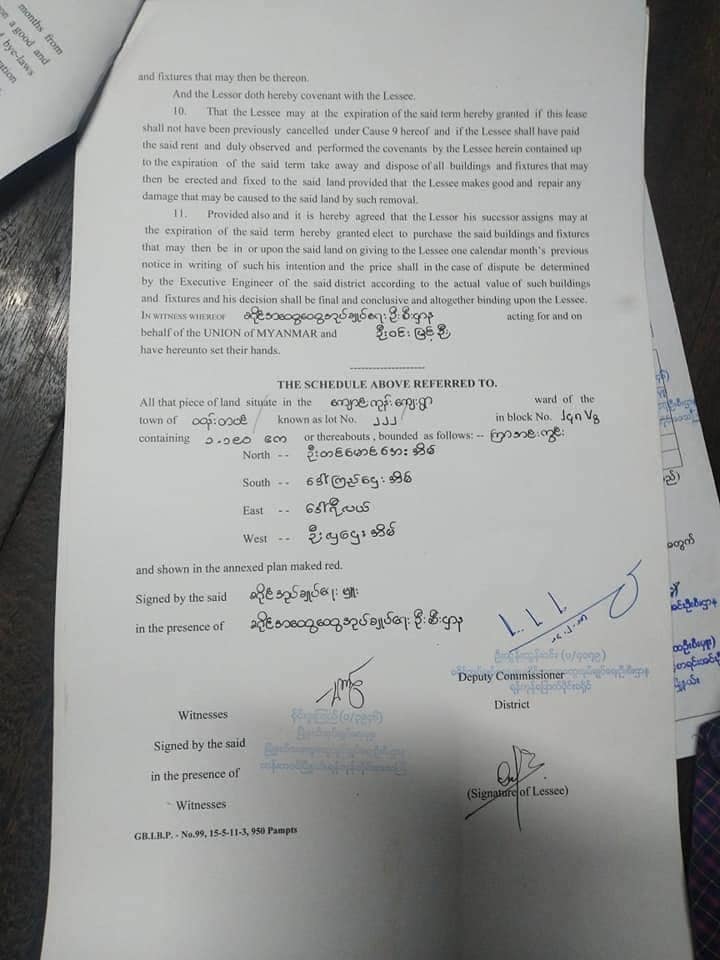 months from
on a good and
bye-laws
and fixtures that may then be thereon.
And the Lessor doth hereby covenant with the Lessee.
10. That the Lessee may at the expiration of the said term hereby granted if this lease
shall not have been previously cancelled under Cause 9 hereof and if the Lessee shall have paid
the said rent and duly observed and performed the covenants by the Lessee herein contained up
to the expiration of the said term take away and dispose of all buildings and fixtures that may
then be erected and fixed to the said land provided that the Lessee makes good and repair any
damage that may be caused to the said land by such removal.
11. Provided also and it is hereby agreed that the Lessor his sucessor assigns may at
the expiration of the said term hereby granted elect to purchase the said buildings and fixtures
that may then be in or upon the said land on giving to the Lessee one calendar month's previous
notice in writing of such his intention and the price shall in the case of dispute be determined
by the Executive Engineer of the said district according to the actual value of such buildings
and fixtures and his decision shall be final and conclusive and altogether binding upon the Lessee.
IN WITNESS WHEREOF ခရိုင်အထွေထွေအုပ်ချုပ်ရေးဦးစီးဌာန acting for and on
behalf of the UNION of MYANMAR and ဦးဝင်းမြင့်ဦး
have hereunto set their hands.
--------------------
THE SCHEDULE ABOVE REFERRED TO.
All that piece of land situate in the ကျောင်းကုန်းကျေးရွာ ward of the
town of known as lot No. in block No.
containing ၁.၁၉၀ ဧက or thereabouts , bounded as follows: -- ကြာအင်းကွင်း
North -- ဦးတင်မောင်အေးအိမ်
South -- ဒေါ်ကြည်ဌေးအိမ်
East --
West -- ဦးလှဌေးအိမ်
and shown in the annexed plan maked red.
Signed by the said ခရိုင်အုပ်ချုပ်ရေးမှူး
in the presence of ခရိုင်အထွေထွေအုပ်ချုပ်ရေးဦးစီးဌာန
Deputy Commissioner
District
Witnesses
Signed by the said
in the presence of
Witnesses
(Signature of Lessee)
GB.I.B.P. - No.99, 15-5-11-3, 950 Pampts